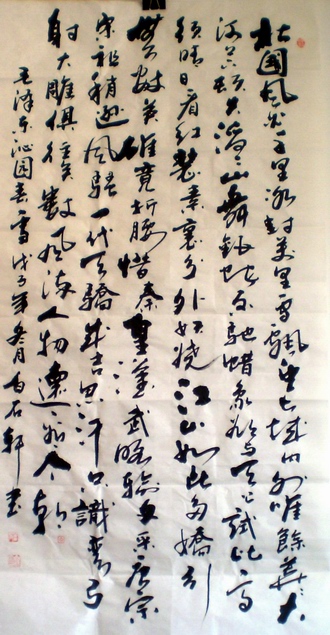 北国风光千里冰封万里雪飘望长城内外惟餘莽莽大
河上下顿失滔滔山舞银蛇原驰蜡象欲与天公试比高
须晴日看红装素裹分外妖娆江山如此多嬌引
無数英雄竞折腰惜秦皇漢武略输文采唐宗
宋祖稍逊风骚一代天驕成吉思汗只識弯弓
射大雕俱往矣數风流人物還看今朝
毛泽东沁园春雪戊子年冬月石轩书